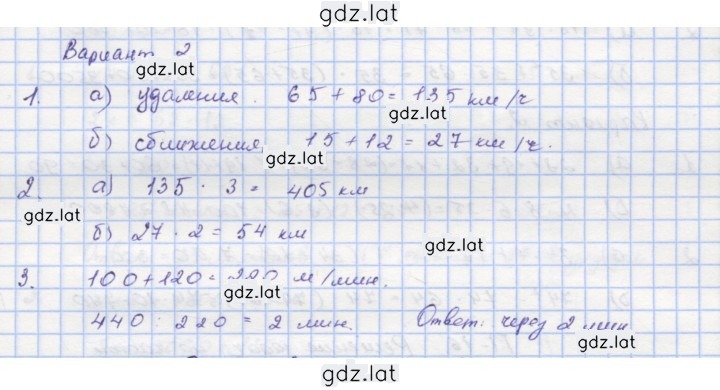 gdz.lat
Вариант 2
gdz.lat
1. а) удаления. 65 + 80 = 135 км/ч
gdz.lat
б) сближения, 15 + 12 = 27 км/ч.
gdz.lat
2. а) 135 · 3 = 405 км
gdz.lat
б) 27 · 2 = 54 км
gdz.lat
3. 100 + 120 = м/мин.
gdz.lat
440 : 220 = 2 мин. Ответ: через 2 мин
gdz.lat
gdz.lat